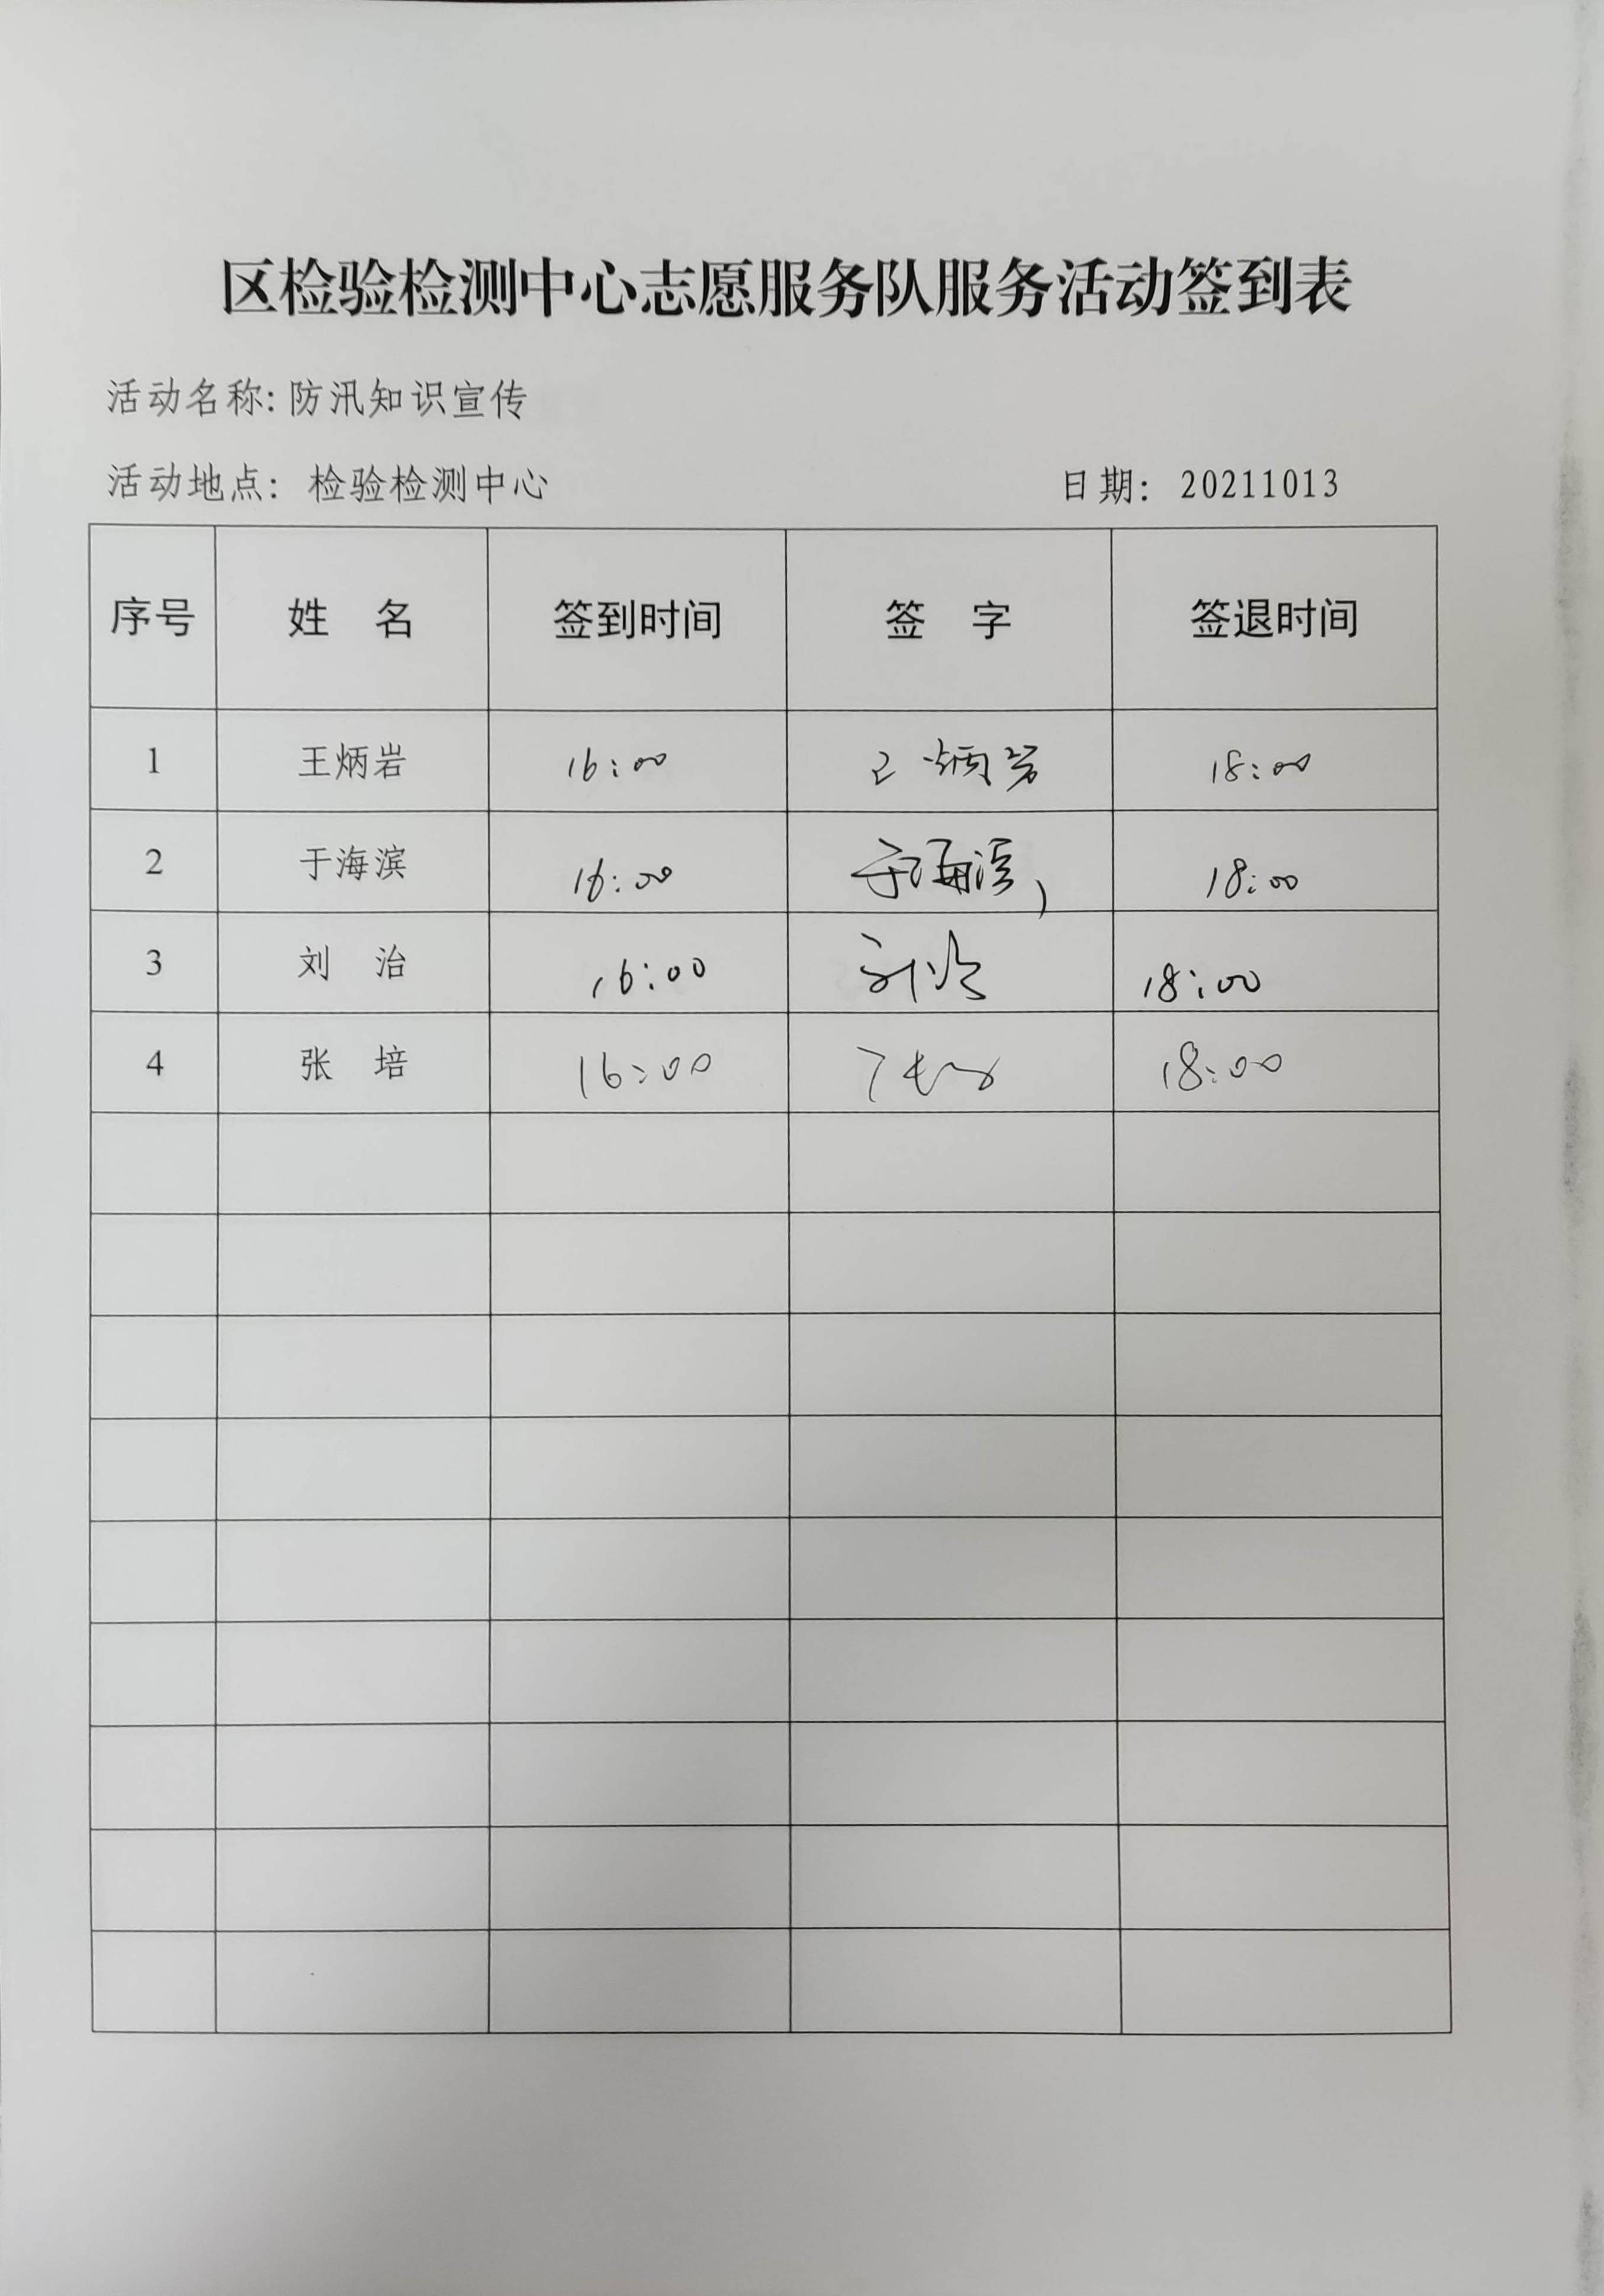 区检验检测中心志愿服务队服务活动签到表
活动名称: 防汛知识宣传
活动地点: 检验检测中心 日期: 20211013
序号 姓 名 签到时间 签 字 签退时间
1 王炳岩 16:00 王炳岩 18:00
2 于海滨 16:00 于海滨 18:00
3 刘 治 16:00 刘治 18:00
4 张 培 16:00 18:00